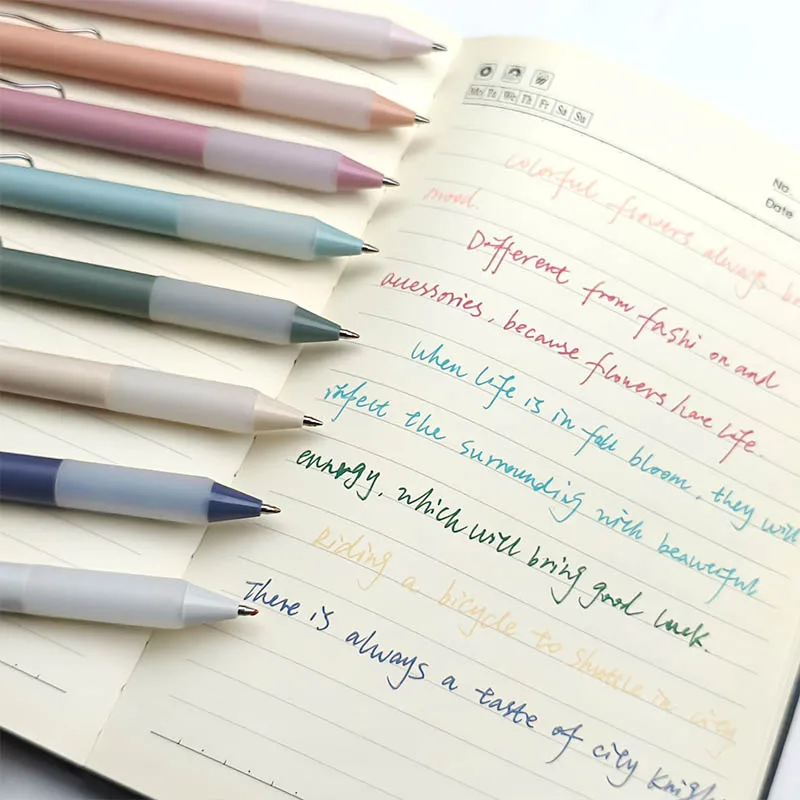 Mo Tu We Th Fr Sa Su
No.
Date
colorful flowers always
mood.
Different from fashion and
accessories, because flowers have life.
When life is in full bloom, they will
infect the surrounding with beautiful
energy, which will bring good luck.
Riding a bicycle to shuttle in city
There is always a taste of city